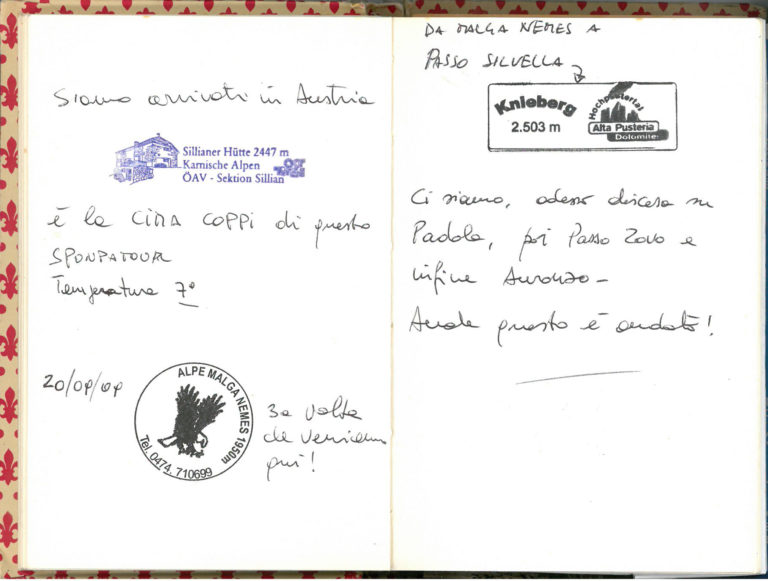 Siamo arrivati in Austria
Sillianer Hütte 2447 m
Karnische Alpen
ÖAV - Sektion Sillian
OST
TIROL
è la CIMA COPPI di questo
SPONPATOUR
Temperatura 7°
20/09/09
ALPE MALGA NEMES 1950m
Tel. 0474. 710699
3a volta
che veniamo
qui!
DA MALGA NEMES A
PASSO SILVELLA
Knieberg
2.503 m
Hochpustertal
Alta Pusteria
Dolomiten
Ci siamo, adesso discesa su
Padola, poi Passo Zovo e
infine Auronzo -
Anche questo è andato!